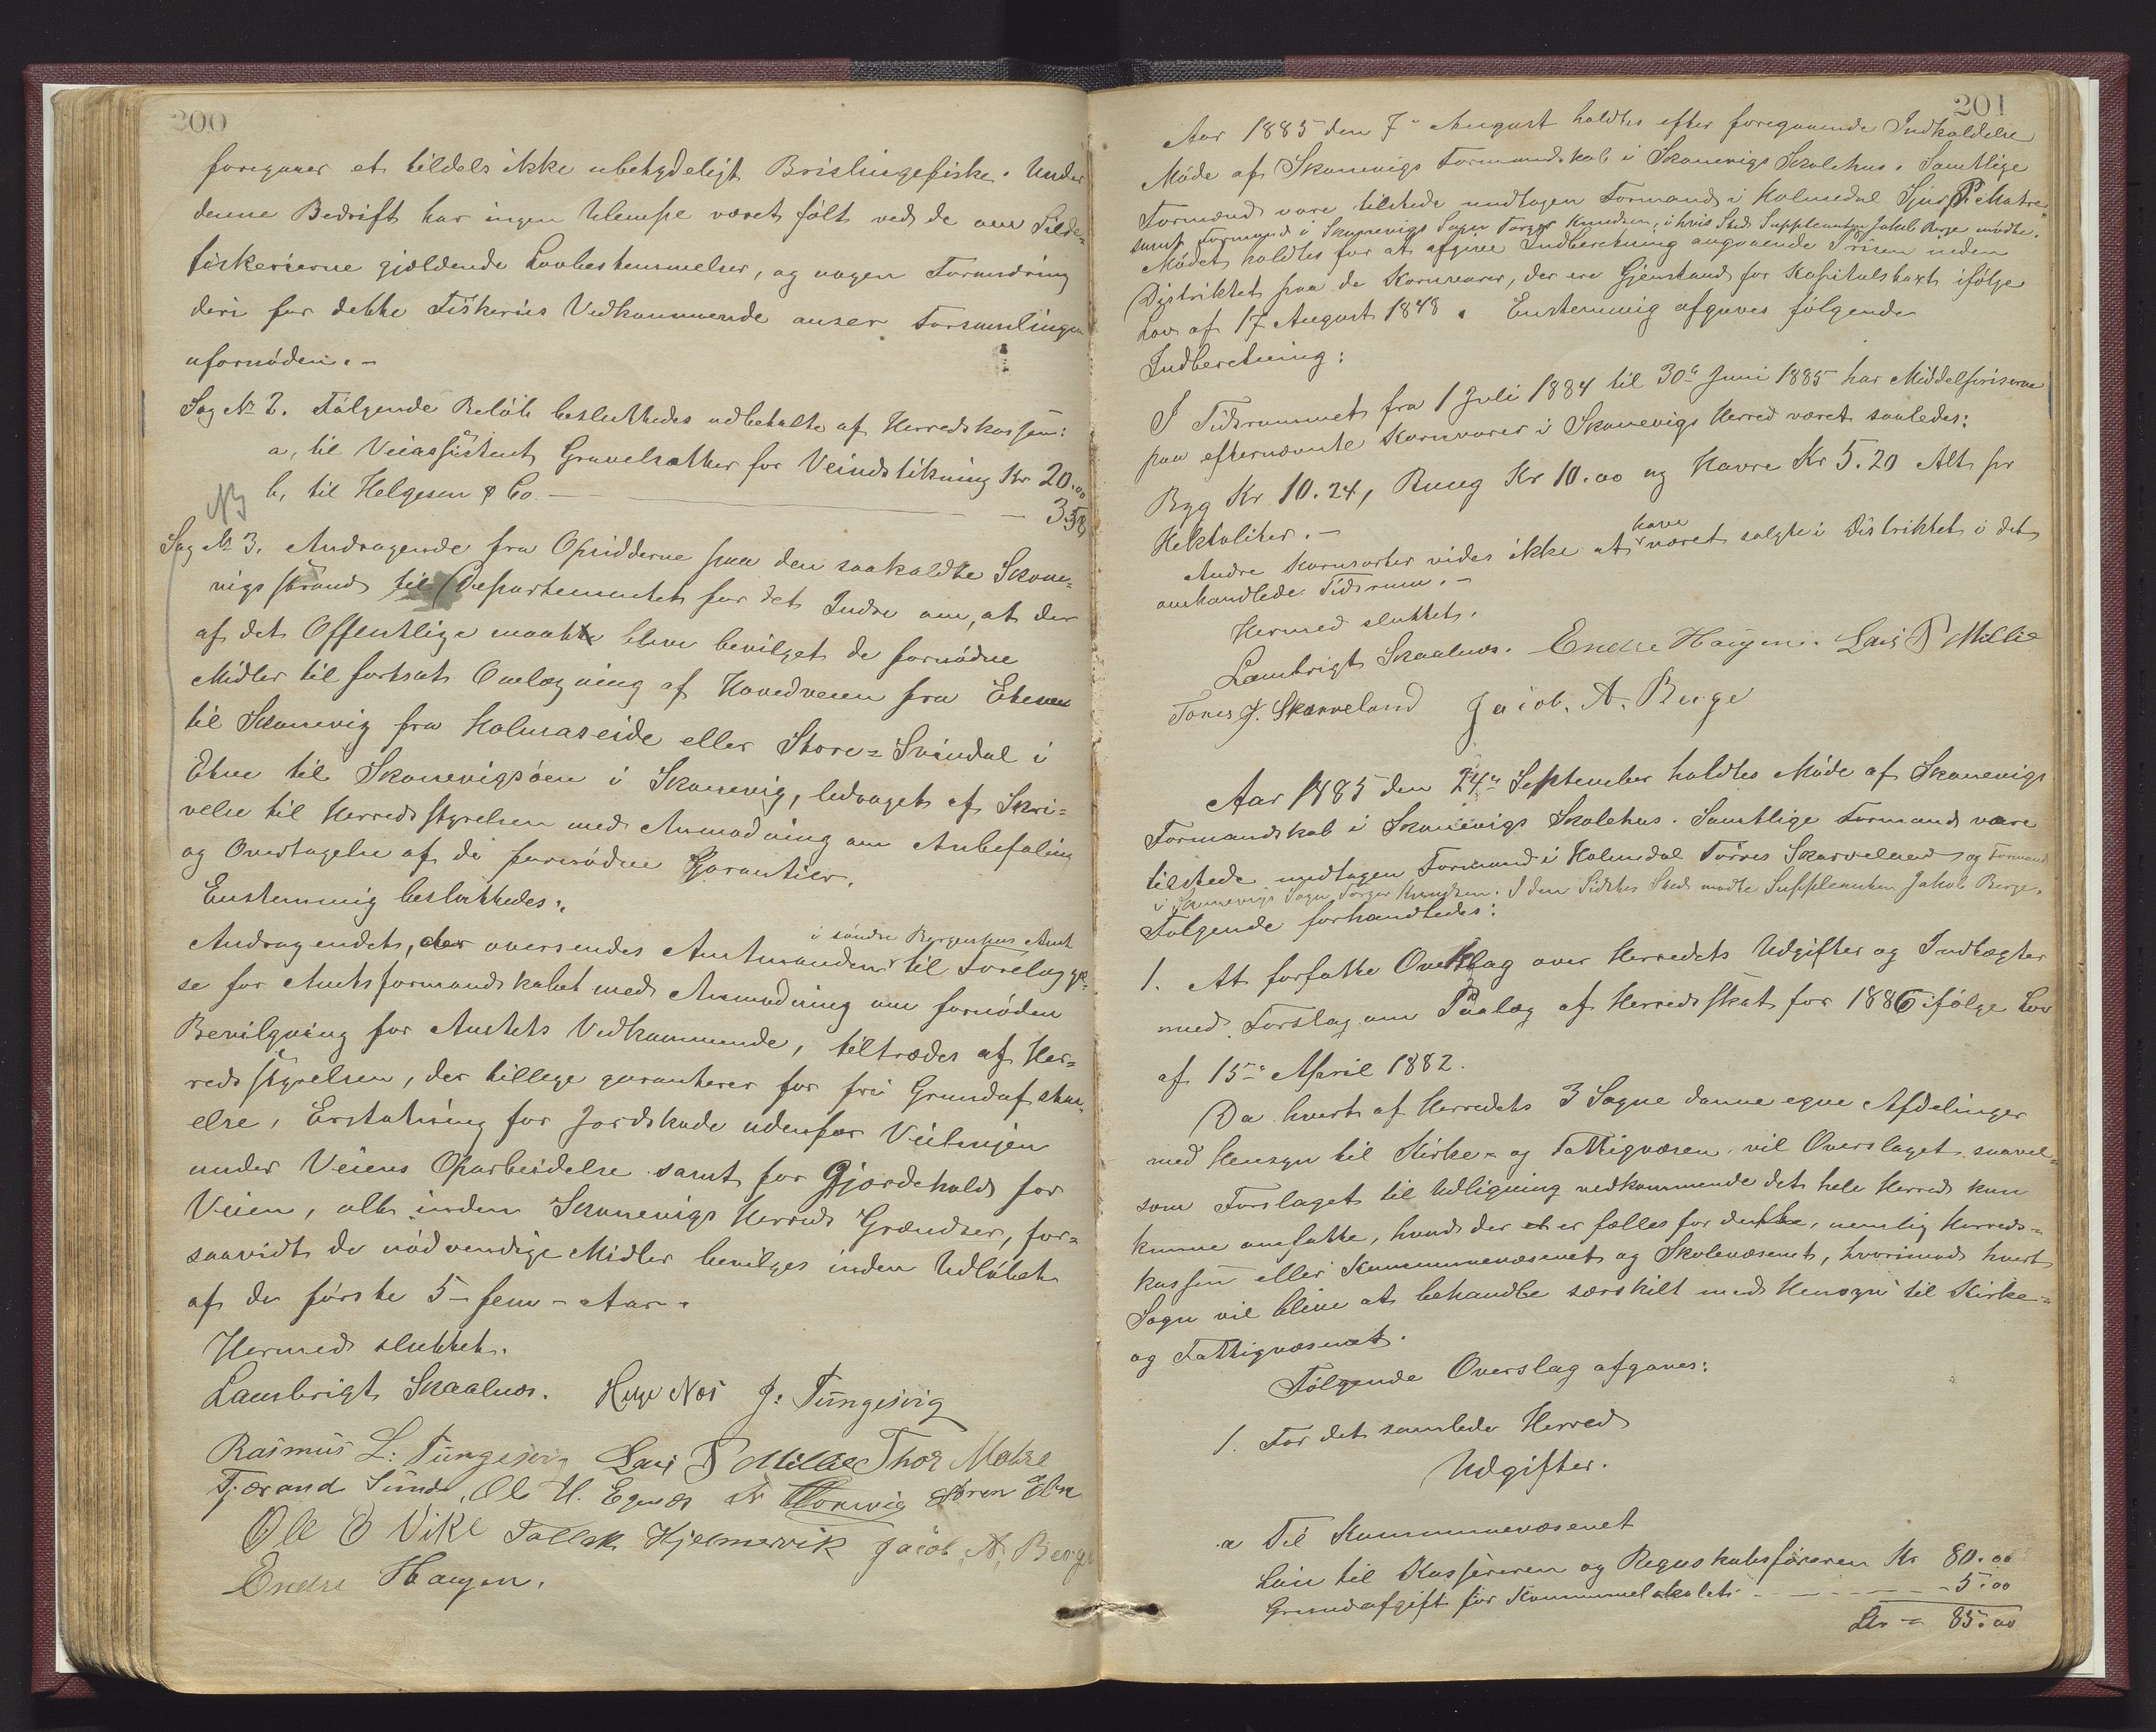 200
foregaaer et tildels ikke ubetydeligt Brislingefiske. Under
denne Bedrift har ingen Ulempe været følt ved de om Silde-
fiskerierne gjældende Lovbestemmelser, og nogen Forandring
deri for dette Fiskeries Vedkommende anser Forsamlingen
ufornøden.-
Sag No 2. Følgende Beløb besluttedes udbetalte af Herredskassen:
a, til Veiassistent Gravelsæther for Veiudstikning Kr 20.00
b, til Helgesen & Co. — — 3.58
NB
Sag No 3. Andragende fra Opsidderne paa den saakaldte Skone-
vigsstrand til Departementet for det Indre om, at der
af det Offentlige maatte blive bevilget de fornødne
Midler til fortsat Omlægning af Hovedveien fra Etne
til Skonevig fra Holmaseide eller Store-Svindal i
Etne til Skonevigsøen i Skonevig, ledsaget af Skri-
velse til Herredsstyrelsen med Anmodning om Anbefaling
og Overtagelse af de fornødne Garantier.
Enstemmig besluttedes:
i søndre Bergenhus Amt
Andragendet, der oversendes Amtmanden til Forelæggel-
se for Amtsformandskabet med Anmodning om fornøden
Bevilgning for Amtets Vedkommende, tiltrædes af Her-
redsstyrelsen, der tillige garanterer for fri Grundafstaa-
else, Erstatning for Jordskade udenfor Veilinjen
under Veiens Oparbeidelse samt for Gjærdehold for
Veien, alt inden Skonevigs Herreds Grændser, for-
saavidt de nødvendige Midler bevilges inden Udløbet
af de første 5 - fem - Aar.
Hermed sluttet.
Lambrigt Skaalnes. Helge Næs J: Tungesvig
Rasmus L: Tungesvig Lars P Millie Thor Matre
Tjerand Sunde, Ole H. Egenæs Søren Etne
Ole O Vike Tollak Hjelmervik Jacob. A. Berge
Endre Haugen.
201
Aar 1885 den 7de August holdtes efter foregaaende Indkaldelse
Møde af Skonevigs Formandskab i Skonevigs Skolehus. Samtlige
Formænd vare tilstede undtagen Formand i Holmedal Sjur P. Matre
samt Formand i Skonevigs Sogn Torger Knudsen, i hvis Sted Supplenten Jakob Berge mødte.
Mødet holdtes for at afgive Indberetning angaaende Prisen inden
Distriktet paa de Kornvarer, der ere Gjenstand for Kapitelstaxt ifølge
Lov af 17 August 1848. Enstemmig afgaves følgende
Indberetning:
I Tidsrummet fra 1 Juli 1884 til 30te Juni 1885 har Middelpriserne
paa efternævnte Kornvarer i Skonevigs Herred været saaledes:
Byg Kr 10.24, Rug Kr 10.00 og Havre Kr 5.20 Alt pr
Hektoliter.-
have
Andre Kornsorter vides ikke at været solgte i Distriktet i det
omhandlede Tidsrum.-
Hermed sluttet.
Lambrigt Skaalnes. Endre Haugen. Lars P Millie
Tøres J. Skarveland Jacob. A. Berge
Aar 1885 den 24de September holdtes Møde af Skonevigs
Formandskab i Skonevigs Skolehus. Samtlige Formænd vare
tilstede undtagen Formand i Holmedal Tørres Skarveland og Formand
i Skonevigs Sogn Torger Knudsen. I den Sidstes Sted mødte Supplenten Jakob Berge.
Følgende forhandledes:
1. At forfatte Overslag over Herredets Udgifter og Indtægter
med Forslag om Paalæg af Herredsskat for 1886 ifølge Lov
af 15de April 1882.
Da hvert af Herredets 3 Sogne danne egne Afdelinger
med Hensyn til Kirke- og Fattigvæsen, vil Overslaget saavel-
som Forslaget til Udligning vedkommende det hele Herred kun
kunne omfatte, hvad der er fælles for dette, nemlig Herreds-
kassen eller Kommunevæsenet og Skolevæsenet, hvorimod hvert
Sogn vil blive at behandle særskilt med Hensyn til Kirke-
og Fattigvæsenet.
Følgende Overslag afgaves:
1. For det samlede Herred
Udgifter.
a Til Kommunevæsenet
Løn til Kassereren og Regnskabsføreren Kr 80.00
Grundafgift for Kommunelokalet - - - - 5.00
Lr - 85.00